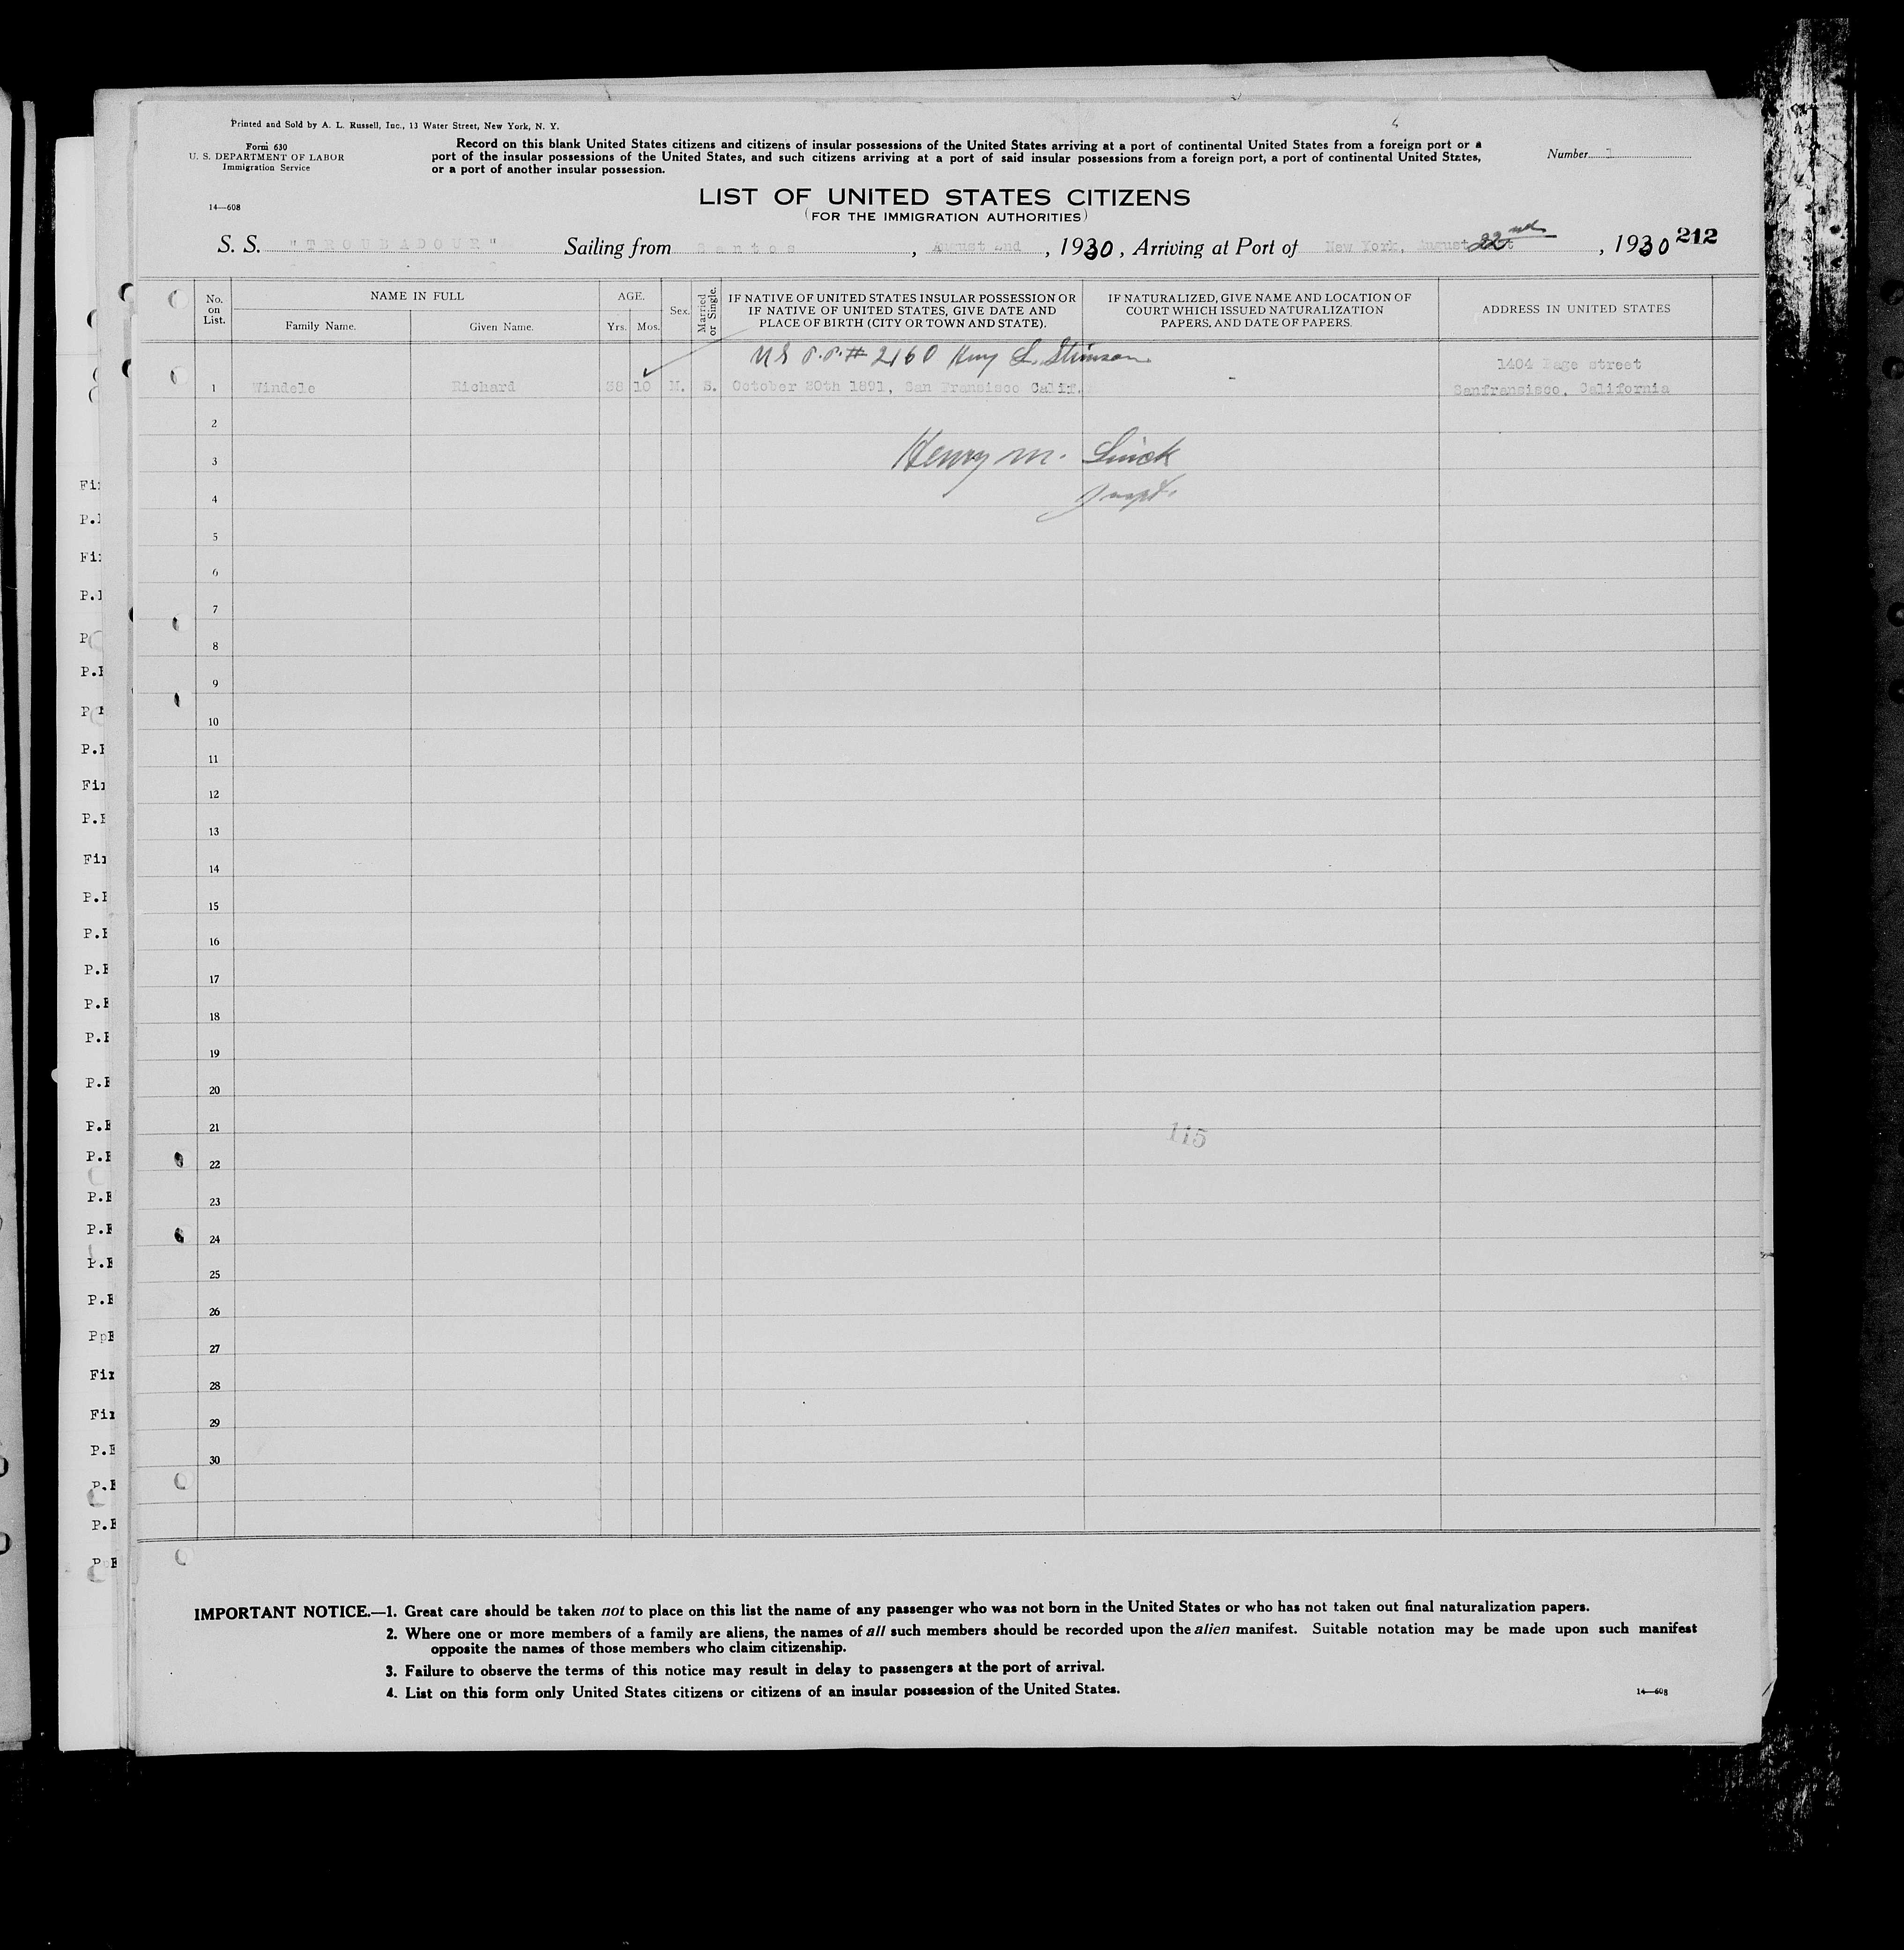 Printed and Sold by A. L. Russell, Inc., 13 Water Street, New York, N. Y.
Form 630
U. S. DEPARTMENT OF LABOR
Immigration Service
Record on this blank United States citizens and citizens of insular possessions of the United States arriving at a port of continental United States from a foreign port or a
port of the insular possessions of the United States, and such citizens arriving at a port of said insular possessions from a foreign port, a port of continental United States,
or a port of another insular possession.
Number 1
14—608
LIST OF UNITED STATES CITIZENS
(FOR THE IMMIGRATION AUTHORITIES)
S. S. "TROUBADOUR" Sailing from Santos, August 2nd, 1930, Arriving at Port of New York, August 22nd, 1930 212
No. on List.
NAME IN FULL
Family Name.
Given Name.
AGE.
Yrs.
Mos.
Sex.
Married or Single.
IF NATIVE OF UNITED STATES INSULAR POSSESSION OR
IF NATIVE OF UNITED STATES, GIVE DATE AND
PLACE OF BIRTH (CITY OR TOWN AND STATE).
IF NATURALIZED, GIVE NAME AND LOCATION OF
COURT WHICH ISSUED NATURALIZATION
PAPERS, AND DATE OF PAPERS.
ADDRESS IN UNITED STATES
US P.P. # 2160 L. Stimson
1404 Page street
1 Windele Richard 38 10 M. S. October 20th 1891, San Fransisco Calif. - Sanfransisco, California
2
Henry M.
3
4
5
6
7
8
9
10
11
12
13
14
15
16
17
18
19
20
21
115
22
23
24
25
26
27
28
29
30
IMPORTANT NOTICE.—1. Great care should be taken not to place on this list the name of any passenger who was not born in the United States or who has not taken out final naturalization papers.
2. Where one or more members of a family are aliens, the names of all such members should be recorded upon the alien manifest. Suitable notation may be made upon such manifest
opposite the names of those members who claim citizenship.
3. Failure to observe the terms of this notice may result in delay to passengers at the port of arrival.
4. List on this form only United States citizens or citizens of an insular possession of the United States.
14—608